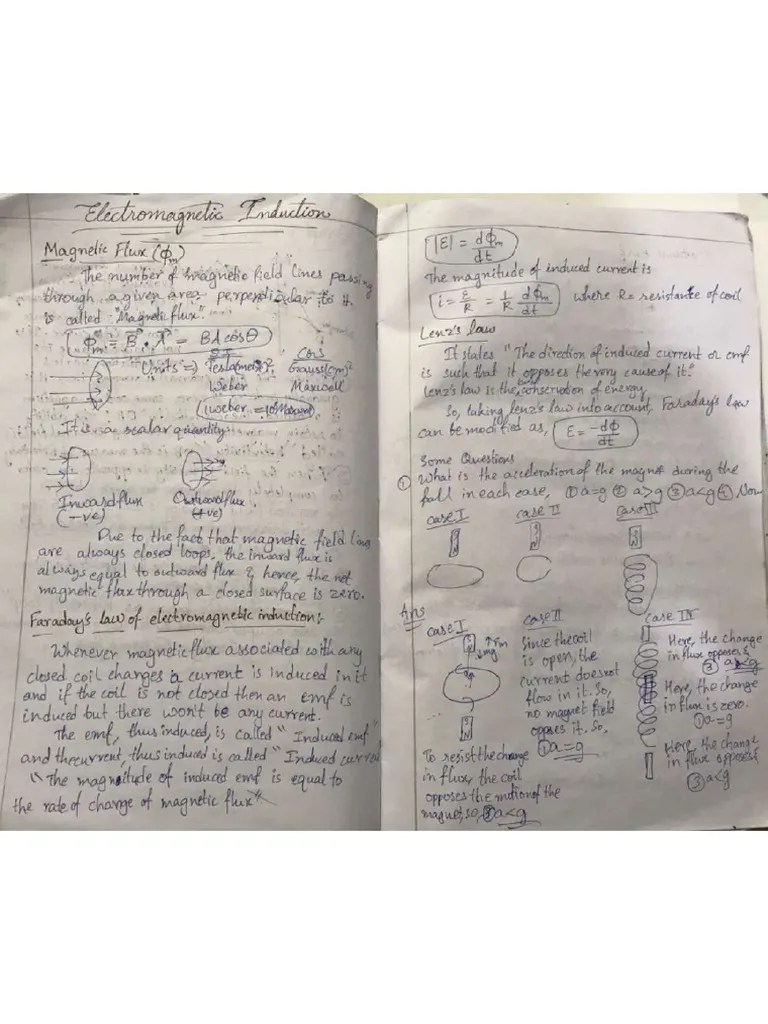 Electromagnetic Induction
Magnetic Flux (ϕm)
The number of magnetic field lines passing
through a given area perpendicular to it
is called "Magnetic flux".
ϕm = B⃗ · A⃗ = BA cosθ
Units ⇒ Tesla(meter)². Gauss(cm)²
Weber Maxwell
1 weber = 10⁸ Maxwell
It is a scalar quantity
Inward flux Outward flux
(-ve) (+ve)
Due to the fact that magnetic field lines
are always closed loops, the inward flux is
always equal to outward flux & hence, the net
magnetic flux through a closed surface is zero.
Faraday's law of electromagnetic induction:-
Whenever magnetic flux associated with any
closed coil changes a current is Induced in it
and if the coil is not closed then an emf is
induced but there won't be any current.
The emf, thus induced, is called "Induced emf"
and the current, thus induced is called "Induced current
"The magnitude of induced emf is equal to
the rate of change of magnetic flux"
|E| = dϕm/dt
The magnitude of induced current is
i = ε/R = 1/R dϕm/dt where R = resistance of coil
Lenz's law
It states "The direction of induced current or emf
is such that it opposes the very cause of it."
Lenz's law is the conservation of energy.
So, taking lenz's law into account, Faraday's law
can be modified as, E = -dϕ/dt
Some Questions
① What is the acceleration of the magnet during the
fall in each case, ① a=g ② a>g ③ a<g ④ Non
case I case II case III
Ans
case I
mg
To resist the change
in flux, the coil
opposes the motion of the
magnet, so, ③ a<g
case II
Since the coil
is open, the
current does not
flow in it. So,
no magnet field
opposes it. So,
① a=g
case III
Here, the change
in flux opposes &
③ a<g
Here, the change
in flux is zero.
① a=g
Here, the change
in flux opposes &
③ a<g